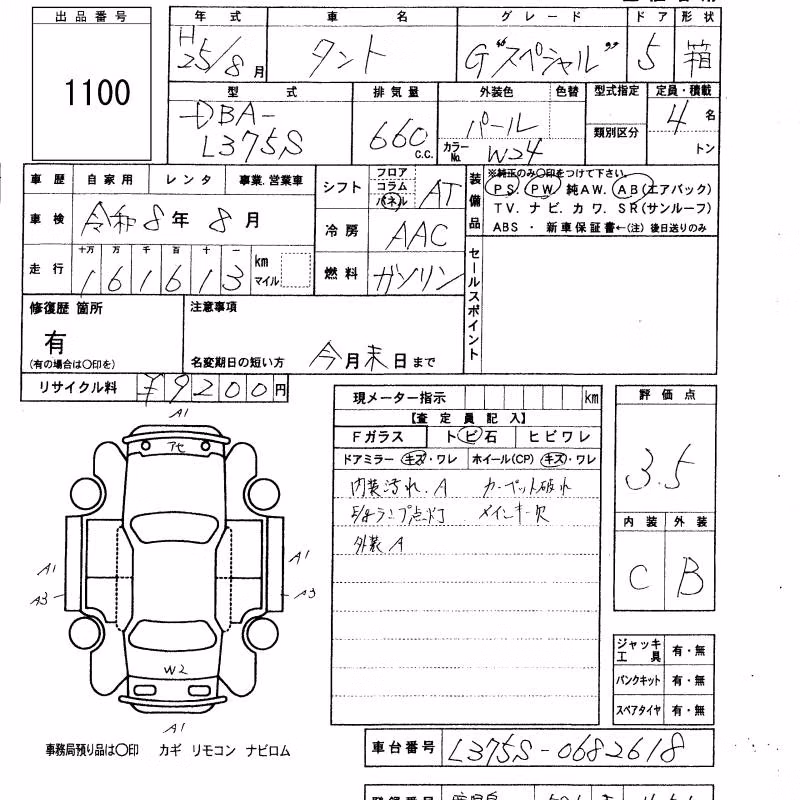 出品番号
1100
年式 車名 グレード ドア 形状
H25/8月 タント G"スペシャル" 5 箱
型式 排気量 外装色 色替 型式指定 定員・積載
DBA-L375S 660 C.C. パール 4名
カラーNo. W24 類別区分 トン
車歴 自家用 レンタ 事業.営業車
車検 令和8年8月
走行 十万 万 千 百 十 一
161613 km マイル
シフト フロア コラム パネル AT
冷房 AAC
燃料 ガソリン
装備品
※純正のみ○印をつけて下さい。
PS PW 純AW. AB(エアバック)
TV. ナビ. カワ. SR(サンルーフ)
ABS・新車保証書←(注)後日送りのみ
セールスポイント
修復歴 箇所
有
(有の場合は○印を)
注意事項
名変期日の短い方 今月末日まで
リサイクル料 ¥9200円
現メーター指示 km
【査定員記入】
Fガラス トビ石 ヒビワレ
ドアミラー キズ・ワレ ホイール(CP) キズ・ワレ
内装汚れ.A カーペット破れ
ランプ点灯 メインキー欠
外装A
評価点
3.5
内装 外装
C B
A1
アセ
A1 A1
A3 A3
W2
A1
ジャッキ工具 有・無
パンクキット 有・無
スペアタイヤ 有・無
事務局預り品は○印 カギ リモコン ナビロム
車台番号 L375S-0682618